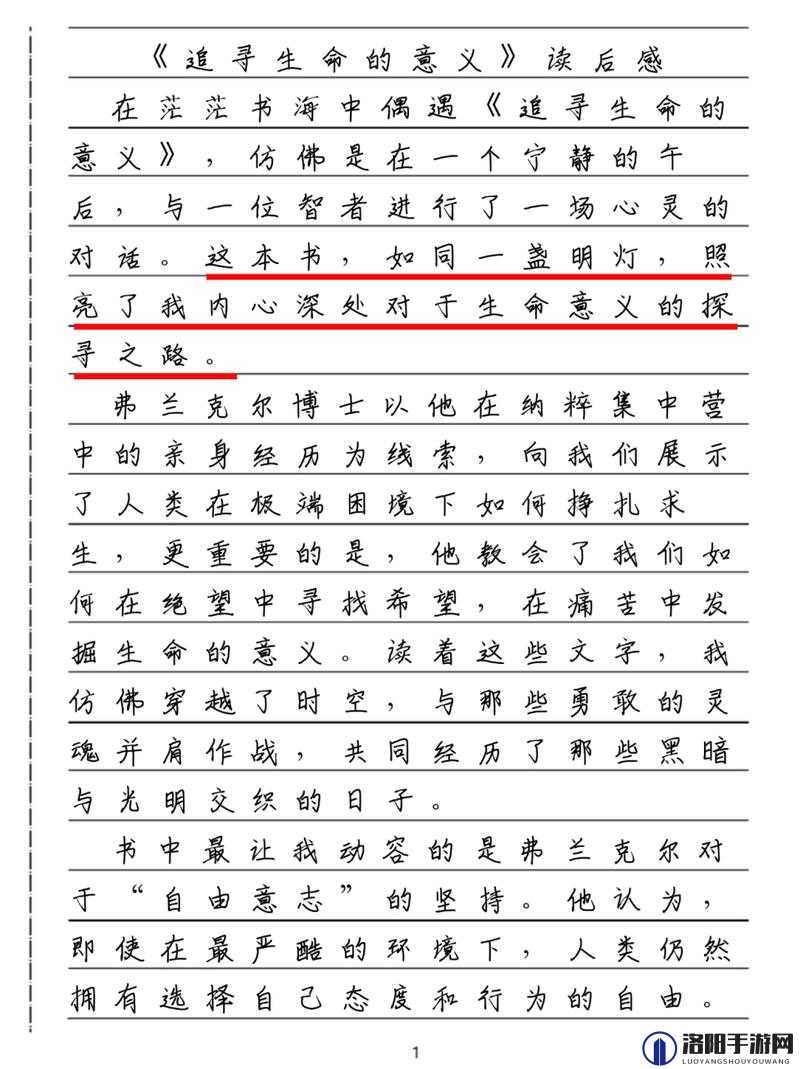 《追寻生命的意义》读后感
在茫茫书海中偶遇《追寻生命的
意义》，仿佛是在一个宁静的午
后，与一位智者进行了一场心灵的
对话。这本书，如同一盏明灯，照
亮了我内心深处对于生命意义的探
寻之路。
弗兰克尔博士以他在纳粹集中营
中的亲身经历为线索，向我们展示
了人类在极端困境下如何挣扎求
生，更重要的是，他教会了我们如
何在绝望中寻找希望，在痛苦中发
掘生命的意义。读着这些文字，我
仿佛穿越了时空，与那些勇敢的灵
魂并肩作战，共同经历了那些黑暗
与光明交织的日子。
书中最让我动容的是弗兰克尔对
于“自由意志”的坚持。他认为，
即使在最严酷的环境下，人类仍然
拥有选择自己态度和行为的自由。
1
洛阳手游网
LUOYANGSHOUYOUWANG